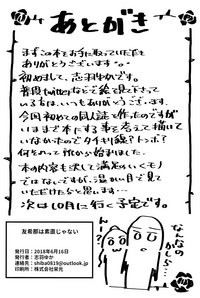 あとがき
まずこの本をお手に取っていただき
ありがとうございます。
初めまして、志羽ゆかです。
普段twitterなどで絵を見て下さって
いる方は、いつもありがとうございます。
今回初めての同人誌を作ったのですが
いままで本にする事を考えて描いて
いなかったのでウキイリ線?トンボ?
何それ…?状態から始まりました。
本の内容も決して満足のいくモノ
ではないですが、温かい目で見て
いただけたらと思います…
次は10月に行く予定です。
友希那は素直じゃない
発行日:2018年6月16日
発行者:志羽ゆか
連絡先:shiba0819@outlook.jp
印刷所:株式会社栄光
なんなの
かしら…
んー?